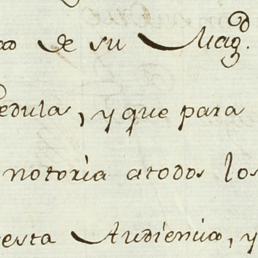 de su Mag.d
edula, y que para
notoria atodos los
esta Audiencia, y